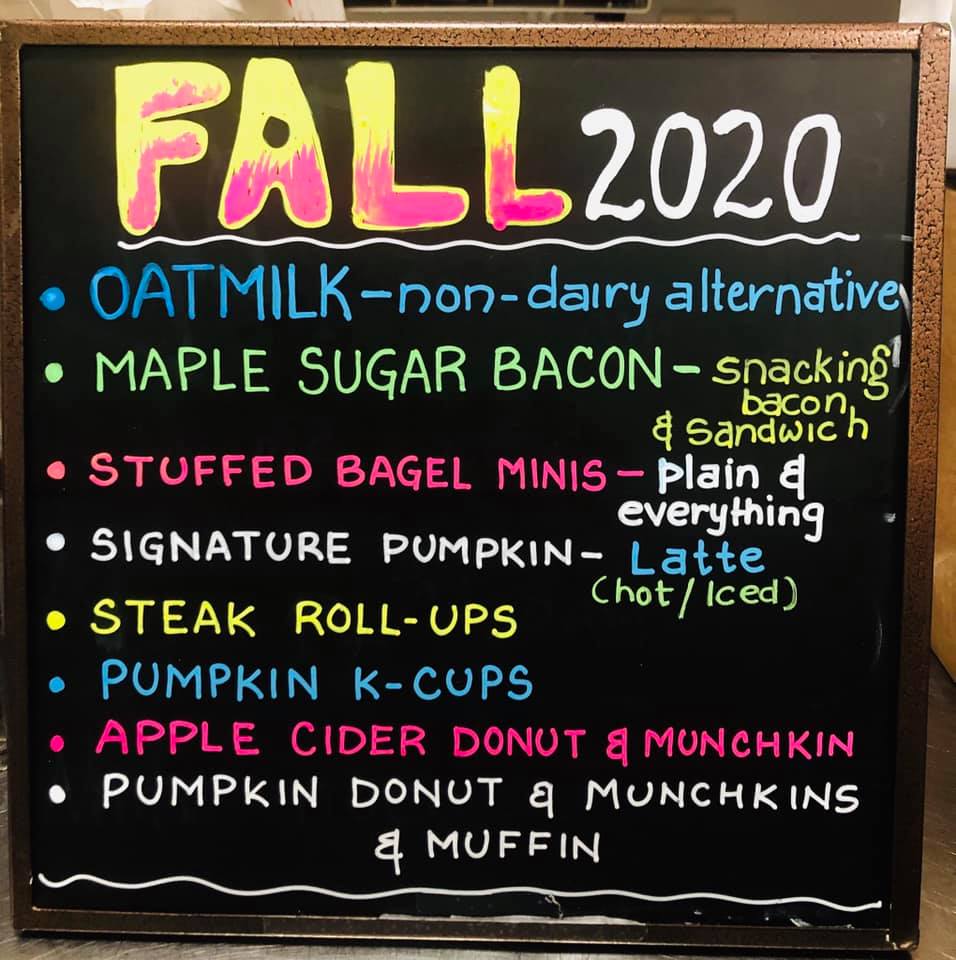 FALL 2020
• OATMILK-non-dairy alternative
• MAPLE SUGAR BACON- snacking
bacon,
& sandwich
• STUFFED BAGEL MINIS- plain &
everything
• SIGNATURE PUMPKIN- Latte
(hot/Iced)
• STEAK ROLL-UPS
• PUMPKIN K-CUPS
• APPLE CIDER DONUT & MUNCHKIN
• PUMPKIN DONUT & MUNCHKINS
& MUFFIN